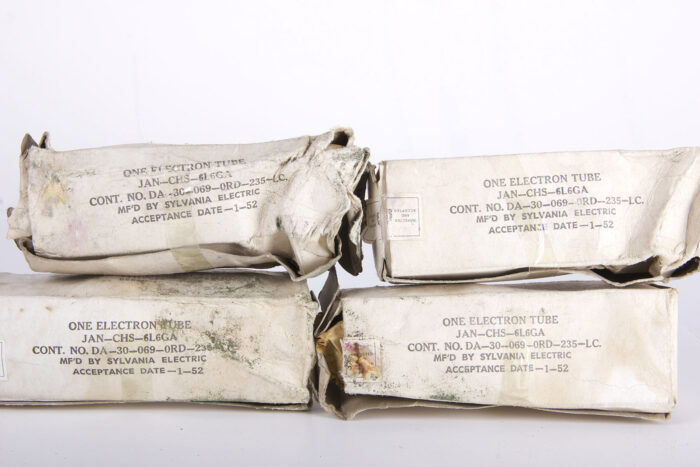 ONE ELECTRON TUBE
JAN-CHS-6L6GA
CONT. NO. DA-30-069-0RD-235-LC.
MF'D BY SYLVANIA ELECTRIC
ACCEPTANCE DATE-1-52
ONE ELECTRON TUBE
JAN-CHS-6L6GA
CONT. NO. DA-30-069-0RD-235-LC.
MF'D BY SYLVANIA ELECTRIC
ACCEPTANCE DATE-1-52
ONE ELECTRON TUBE
JAN-CHS-6L6GA
CONT. NO. DA-30-069-0RD-236
MF'D BY SYLVANIA ELECTRIC
ACCEPTANCE DATE-1-52
ONE ELECTRON TUBE
JAN-CHS-6L6GA
CONT. NO. DA-30-069-0RD-235-LC.
MF'D BY SYLVANIA ELECTRIC
ACCEPTANCE DATE-1-52